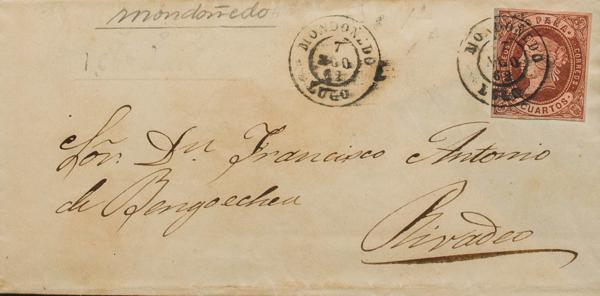 mondoñedo
MONDOÑEDO
7
AGO
62
LUGO
MONDOÑEDO
7
AGO
62
LUGO
ESPAÑA
CORREOS
CUARTOS
Sor. Dn. Francisco Antonio
de Bengoechea
Rivadeo